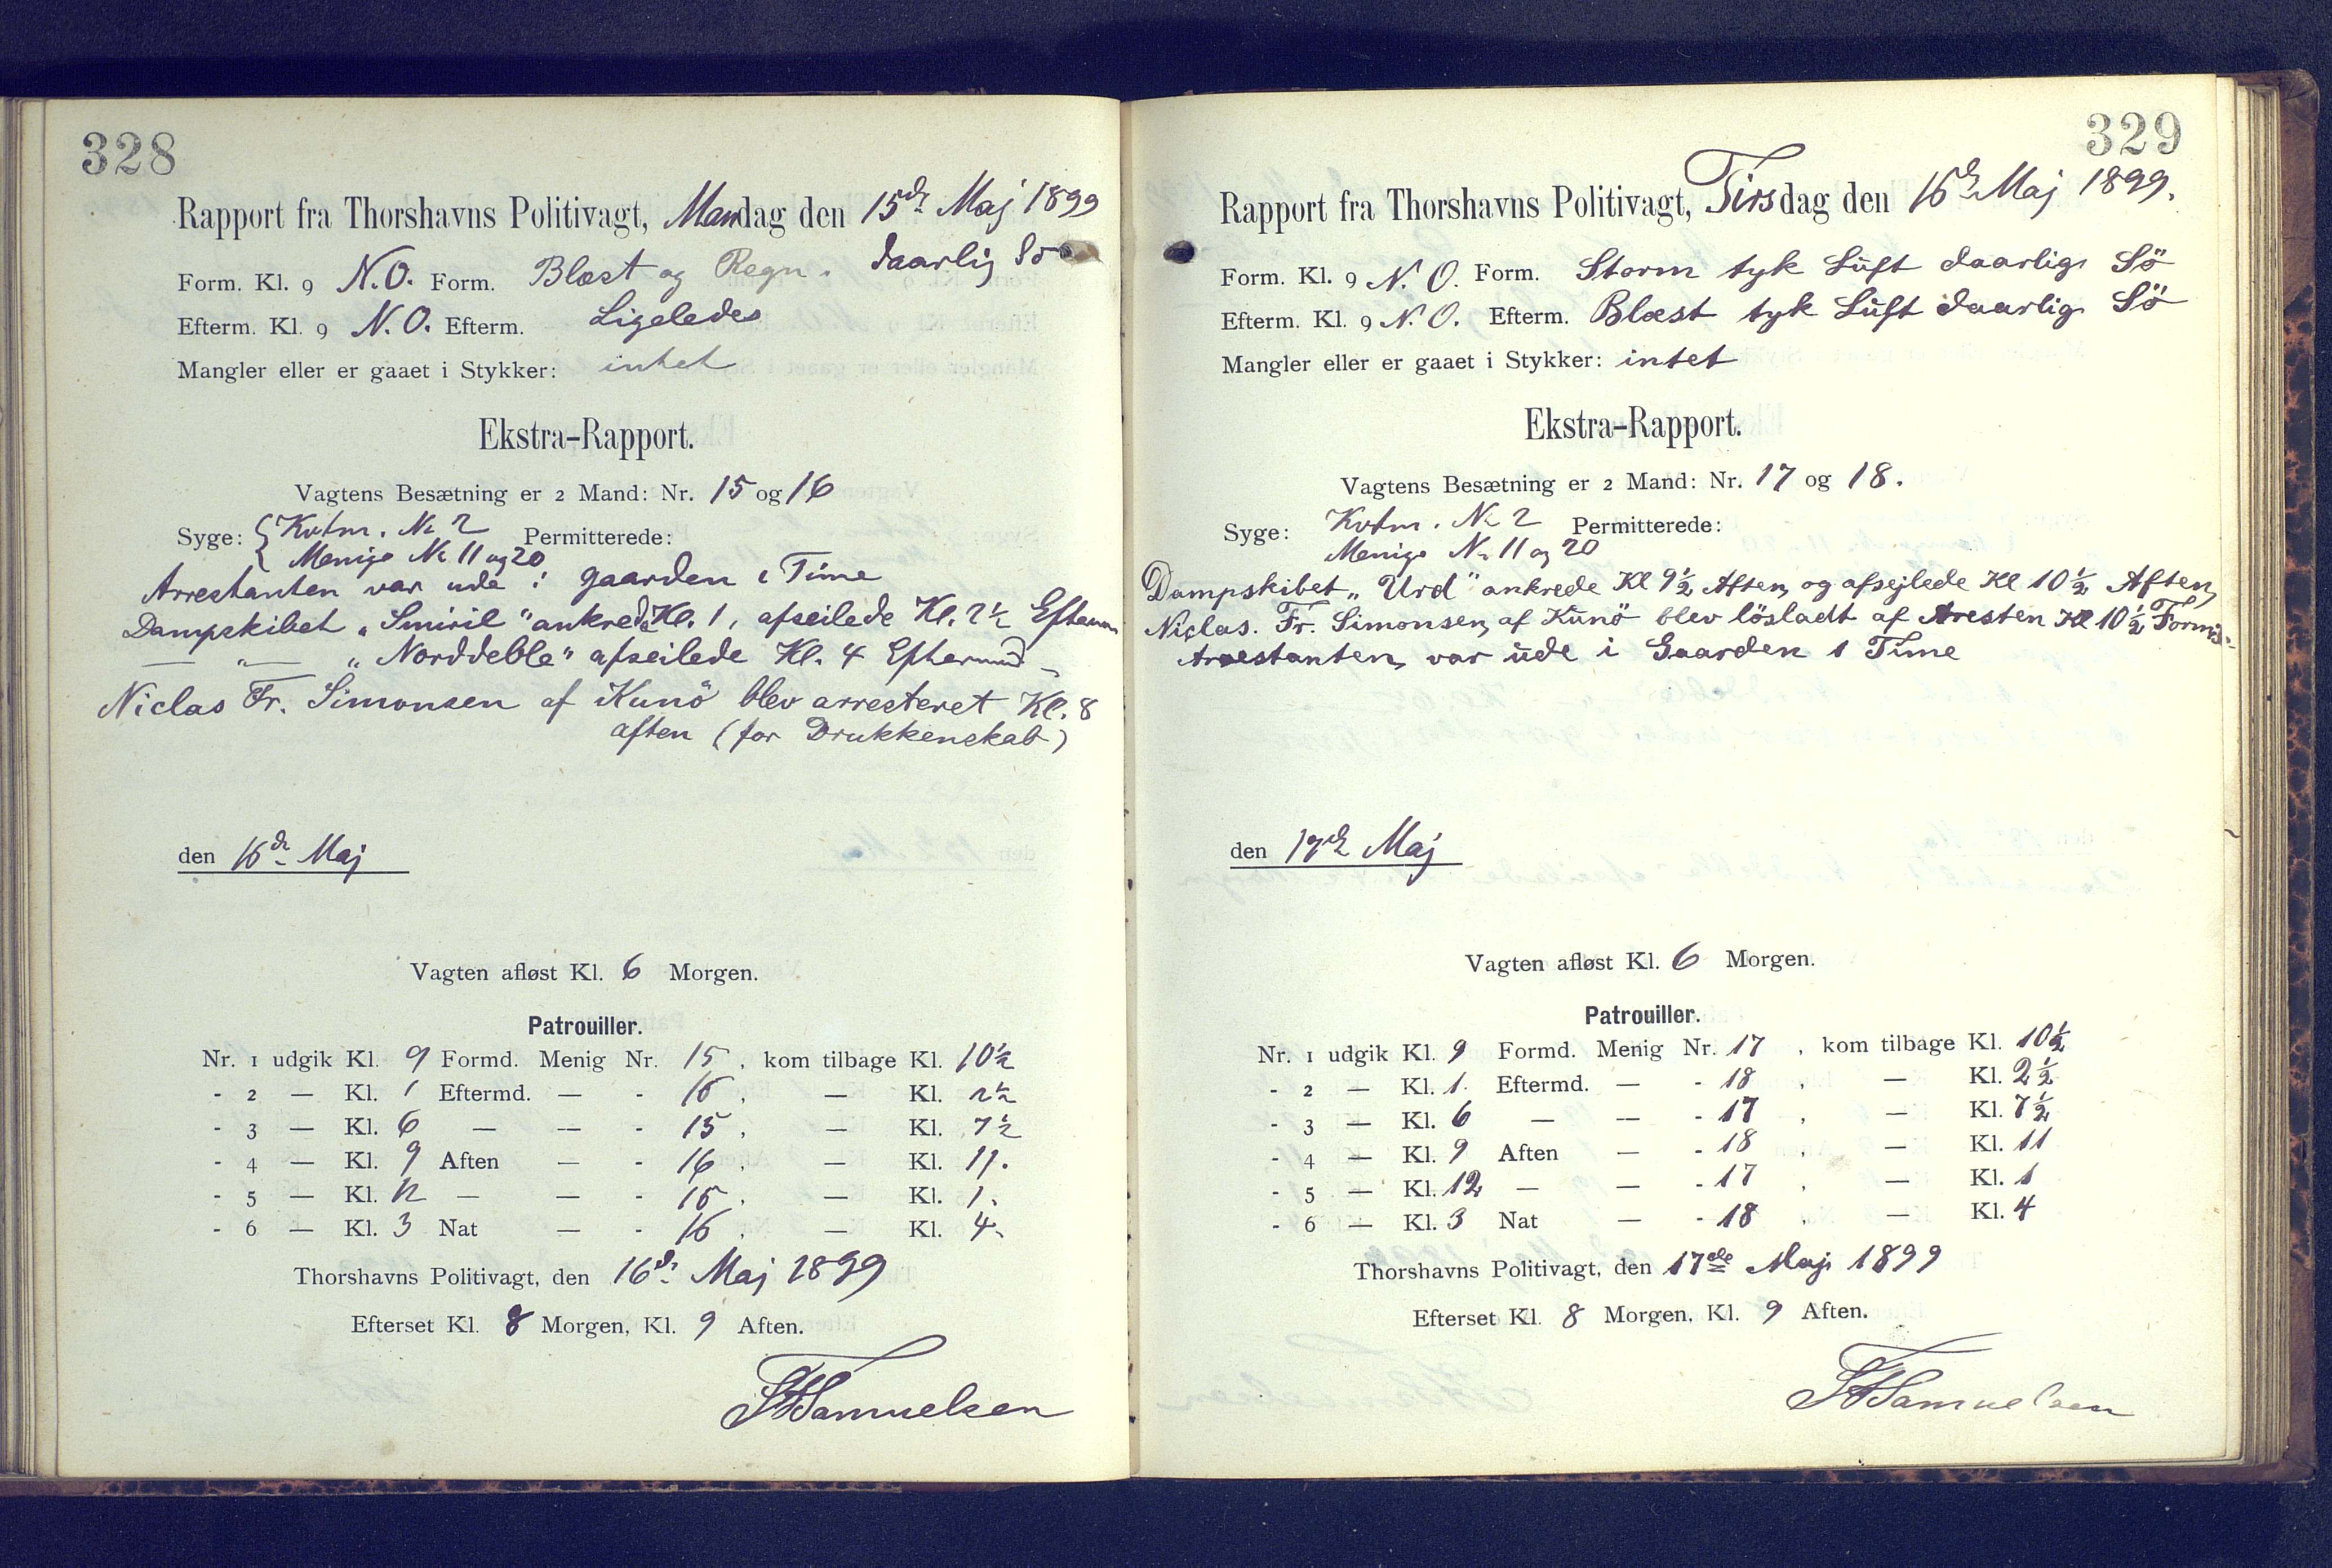 328
Rapport fra Thorshavns Politivagt, Mandag den 15de Maj 1899
Form. Kl. 9 N.O. Form. Blæst og Regn. daarlig Sö
Efterm. Kl. 9 N.O. Efterm. Ligeledes
Mangler eller er gaaet i Stykker: intet
Ekstra-Rapport.
Vagtens Besætning er 2 Mand: Nr. 15 og 16
Syge: { Kvtm. No 2 Permitterede:
Menige No 11 og 20
Arrestanten var ude i gaarden 1 Time
Dampskibet „Smiril" ankrede Kl. 1, afseilede Kl. 2½ Efterm
— „ — „Norddeble" afseilede Kl. 4 Eftermd
Niclas Fr. Simonsen af Kunö blev arresteret Kl. 8
aften (for Drukkenskab)
den 16de Maj
Vagten afløst Kl. 6 Morgen.
Patrouiller.
Nr. 1 udgik Kl. 9 Formd. Menig Nr. 15, kom tilbage Kl. 10½
- 2 — Kl. 1 Eftermd. — - 16, — Kl. 2½
- 3 — Kl. 6 — — - 15, — Kl. 7½
- 4 — Kl. 9 Aften — - 16, — Kl. 11.
- 5 — Kl. 12 — — - 15, — Kl. 1.
- 6 — Kl. 3 Nat — - 16, — Kl. 4.
Thorshavns Politivagt, den 16de Maj 1899
Efterset Kl. 8 Morgen, Kl. 9 Aften.
Samuelsen
329
Rapport fra Thorshavns Politivagt, Tirsdag den 16de Maj 1899.
Form. Kl. 9 N.O. Form. Storm tyk Lŭft daarlig Sö
Efterm. Kl. 9 N.O. Efterm. Blæst tyk Lŭft daarlig Sö
Mangler eller er gaaet i Stykker: intet
Ekstra-Rapport.
Vagtens Besætning er 2 Mand: Nr. 17 og 18.
Syge: Kvtm. No 2 Permitterede:
Menige No 11 og 20
Dampskibet „Urd" ankrede Kl 9½ Aften, og afsejlede Kl 10½ Aften,
Niclas. Fr. Simonsen, af Kŭnö blev lösladt af Aresten Kl 10½ Formd
Arestanten, var ŭde i Gaarden 1 Time
den 17de Maj
Vagten afløst Kl. 6 Morgen.
Patrouiller.
Nr. 1 udgik Kl. 9 Formd. Menig Nr. 17, kom tilbage Kl. 10½
- 2 — Kl. 1. Eftermd. — - 18, — Kl. 2½
- 3 — Kl. 6 — — - 17, — Kl. 7½
- 4 — Kl. 9 Aften — - 18, — Kl. 11
- 5 — Kl. 12 — — - 17, — Kl. 1
- 6 — Kl. 3 Nat — - 18, — Kl. 4
Thorshavns Politivagt, den 17de Maj 1899
Efterset Kl. 8 Morgen, Kl. 9 Aften.
Samuelsen